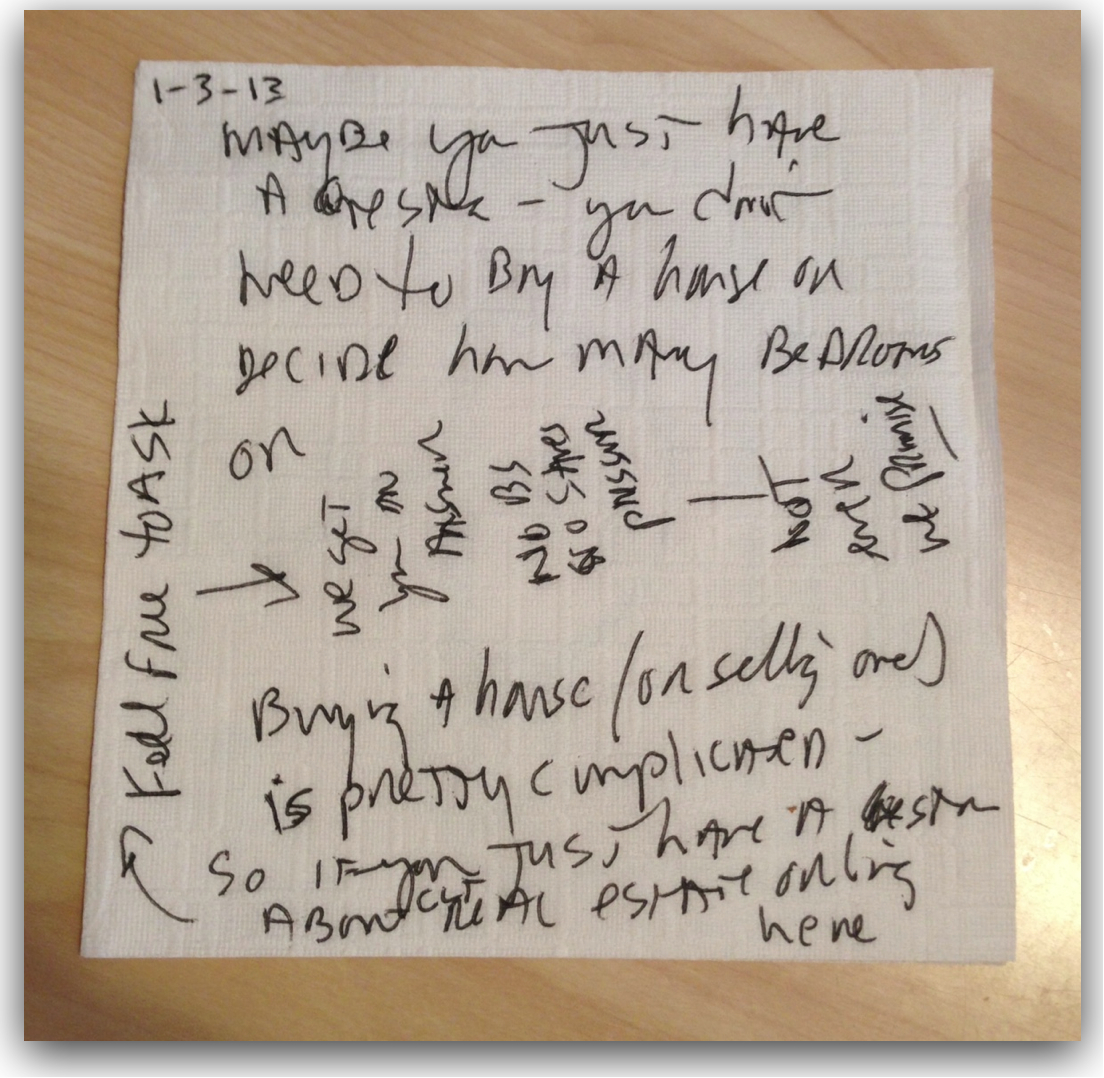 1-3-13
MAyBe you JUST hAve
A Question - you don't
NeeD to Buy A house or
DeCIDe how mANy BeDRooms
or
→ we get
you an
Answer
NO BS
NO SAles
pressure
— NOT
even
we promise
Buying A house (or selling one)
is preTTy complicateD -
So IF you JUST hAve A question
ABout CST ReAl estAte or living
here
Feel free to ASK